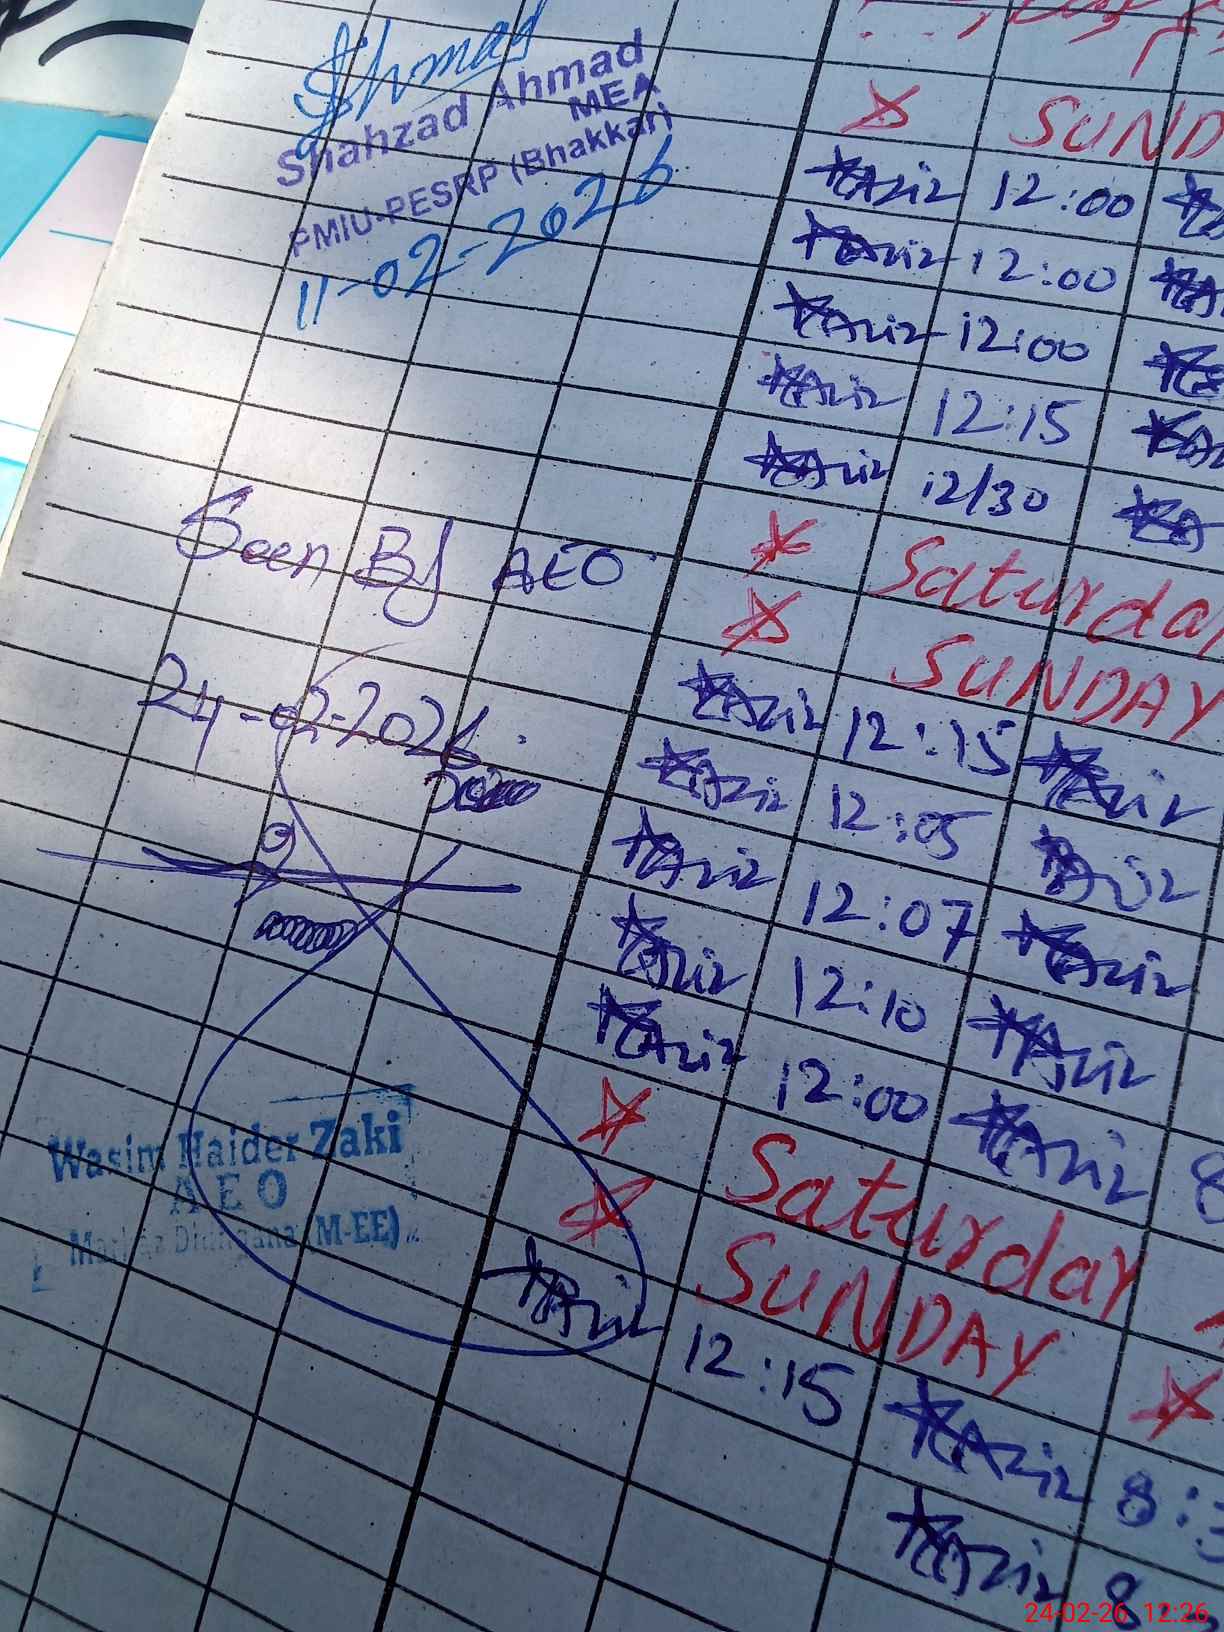 Shahzad Ahmad
MEA
PMIU-PESRP (Bhakkar)
11-02-2026
SUND
Aziz 12:00
Aziz 12:00
Aziz 12:00
Aziz 12:15
Aziz 12/30
Seen By AEO
Saturday
SUNDAY
24-02-2026
Aziz 12:15 Aziz
Aziz 12:05 Aziz
Aziz 12:07 Aziz
Aziz 12:10 Aziz
Aziz 12:00 Aziz 8
Saturday
SUNDAY
Wasim Haider Zaki
AEO
(M-EE)
Aziz 12:15 Aziz 8:3
Aziz 8
24-02-26 12:26